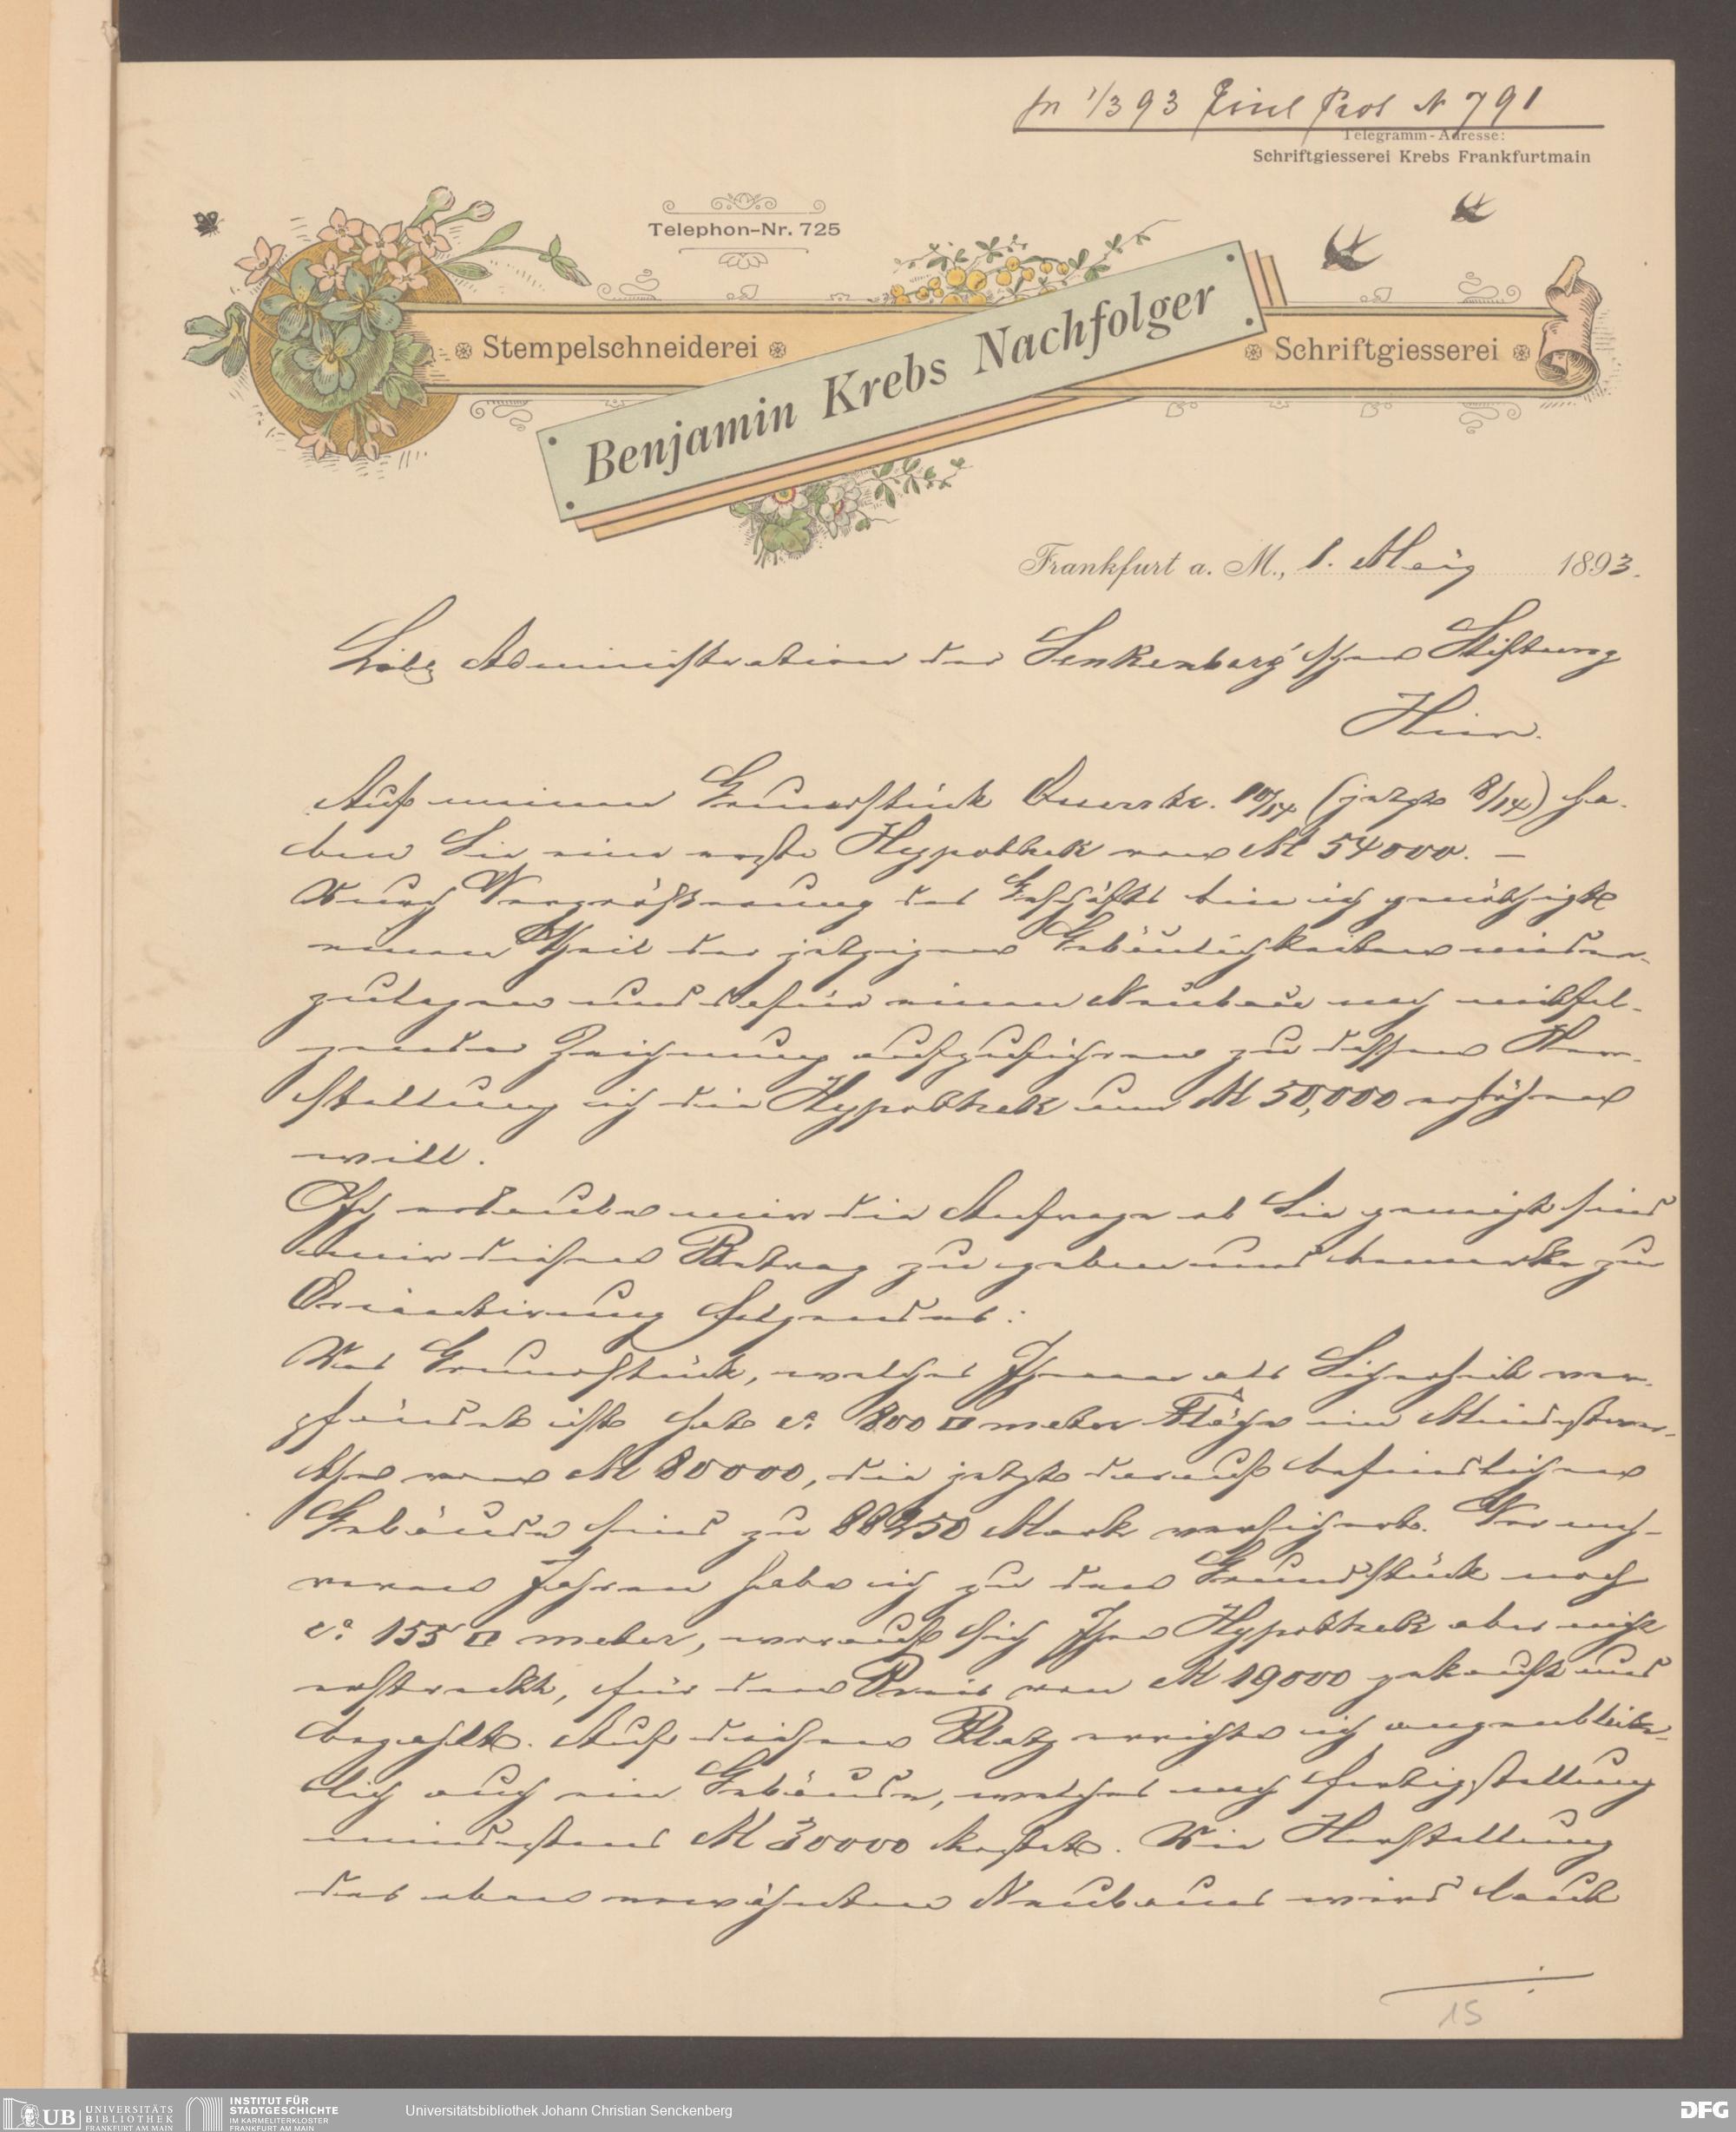 pr 1/3 93 Einl Prot N 791
Telegramm-Adresse:
Schriftgiesserei Krebs Frankfurtmain
Telephon-Nr. 725
Stempelschneiderei
Benjamin Krebs Nachfolger
Schriftgiesserei
Frankfurt a. M., 1. März 1893.
Löbl Administration der Senkenberg'schen Stiftung
Hier.
Auf meinem Grundstück Querstr. 10/14 (jetzt 8/14) ha-
ben Sie eine erste Hypothek von M 54000. —
Durch Vergrößerung des Geschäfts bin ich genöthigt
einen Theil der jetzigen Gebäulichkeiten nieder-
zulegen und dafür einen Neubau nach mitfol-
gender Zeichnung aufzuführen zu dessen Her-
stellung ich die Hypothek um M 50,000 erhöhen
will.
Ich erlaube mir die Anfrage ob Sie geneigt sind
mir diesen Betrag zu geben und bemerke zur
Orientirung folgendes:
Das Grundstück, welches Ihnen als Sicherheit ver-
pfändet ist hat ca. 800 □ meter Fläche im Mindestwer-
the von M 80000, die jetzt darauf befindlichen
Gebäude sind zu 88250 Mark versichert. Vor meh-
reren Jahren habe ich zu dem Grundstück noch
ca. 155 □ meter, worauf sich Ihre Hypothek aber nicht
erstreckt, für den Preis von M 19000 gekauft und
bezahlt. Auf diesem Platz errichte ich augenblick-
lich auch ein Gebäude, welches nach Fertigstellung
mindestens M 30000 kostet. Die Herstellung
des oben erwähnten Neubaues wird laut
15
UB UNIVERSITÄTS
BIBLIOTHEK
FRANKFURT AM MAIN
INSTITUT FÜR
STADTGESCHICHTE
IM KARMELITERKLOSTER
FRANKFURT AM MAIN
Universitätsbibliothek Johann Christian Senckenberg
DFG